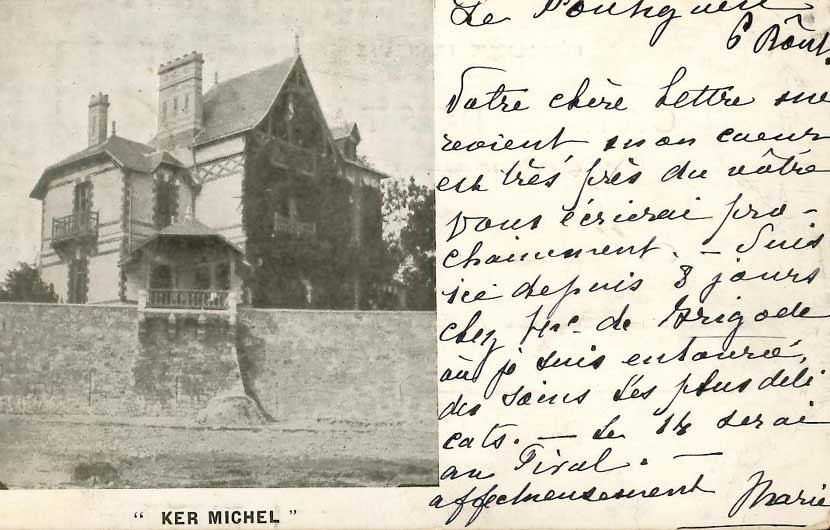 Le Pouliguen
6 Août.
Votre chère lettre me
revient mon cœur
est très près du vôtre
Vous écrierai pro-
chainement. - Suis
ici depuis 8 jours
chez Mᵉ. de Brigode
où je suis entouré,
des soins les plus déli
cats. - Le 14 serai
au
affectueusement Marie
" KER MICHEL "